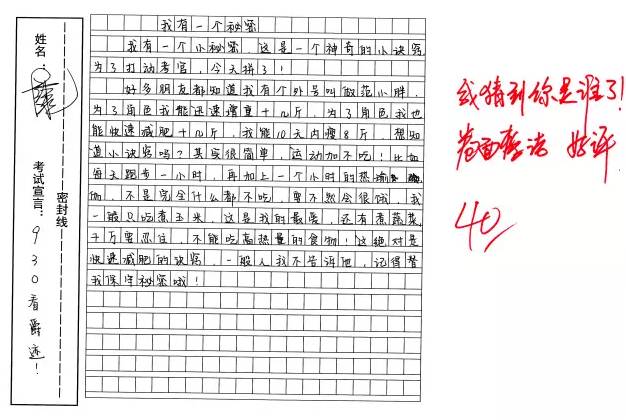 姓名：
考试宣言：930看爵迹！
密封线
我有一个秘密
我有一个小秘密，这是一个神奇的小诀窍
为了打动考官，今天拼了！
好多朋友都知道我有个外号叫做范小胖，
为了角色我能迅速增重十几斤，为了角色我也
能快速减肥十几斤，我能10天内瘦8斤，想知
道小诀窍吗？其实很简单，运动加不吃！比如
每天跑步一小时，再加上一个小时的热瑜
伽，不是完全什么都不吃，要不然会很饿，我
一般只吃煮玉米，这是我的最爱，还有煮蔬菜，
千万要忍住，不能吃高热量的食物！这绝对是
快速减肥的诀窍，一般人我不告诉他，记得替
我保守秘密哦！
我猜到你是谁了！
卷面整洁 好评
40